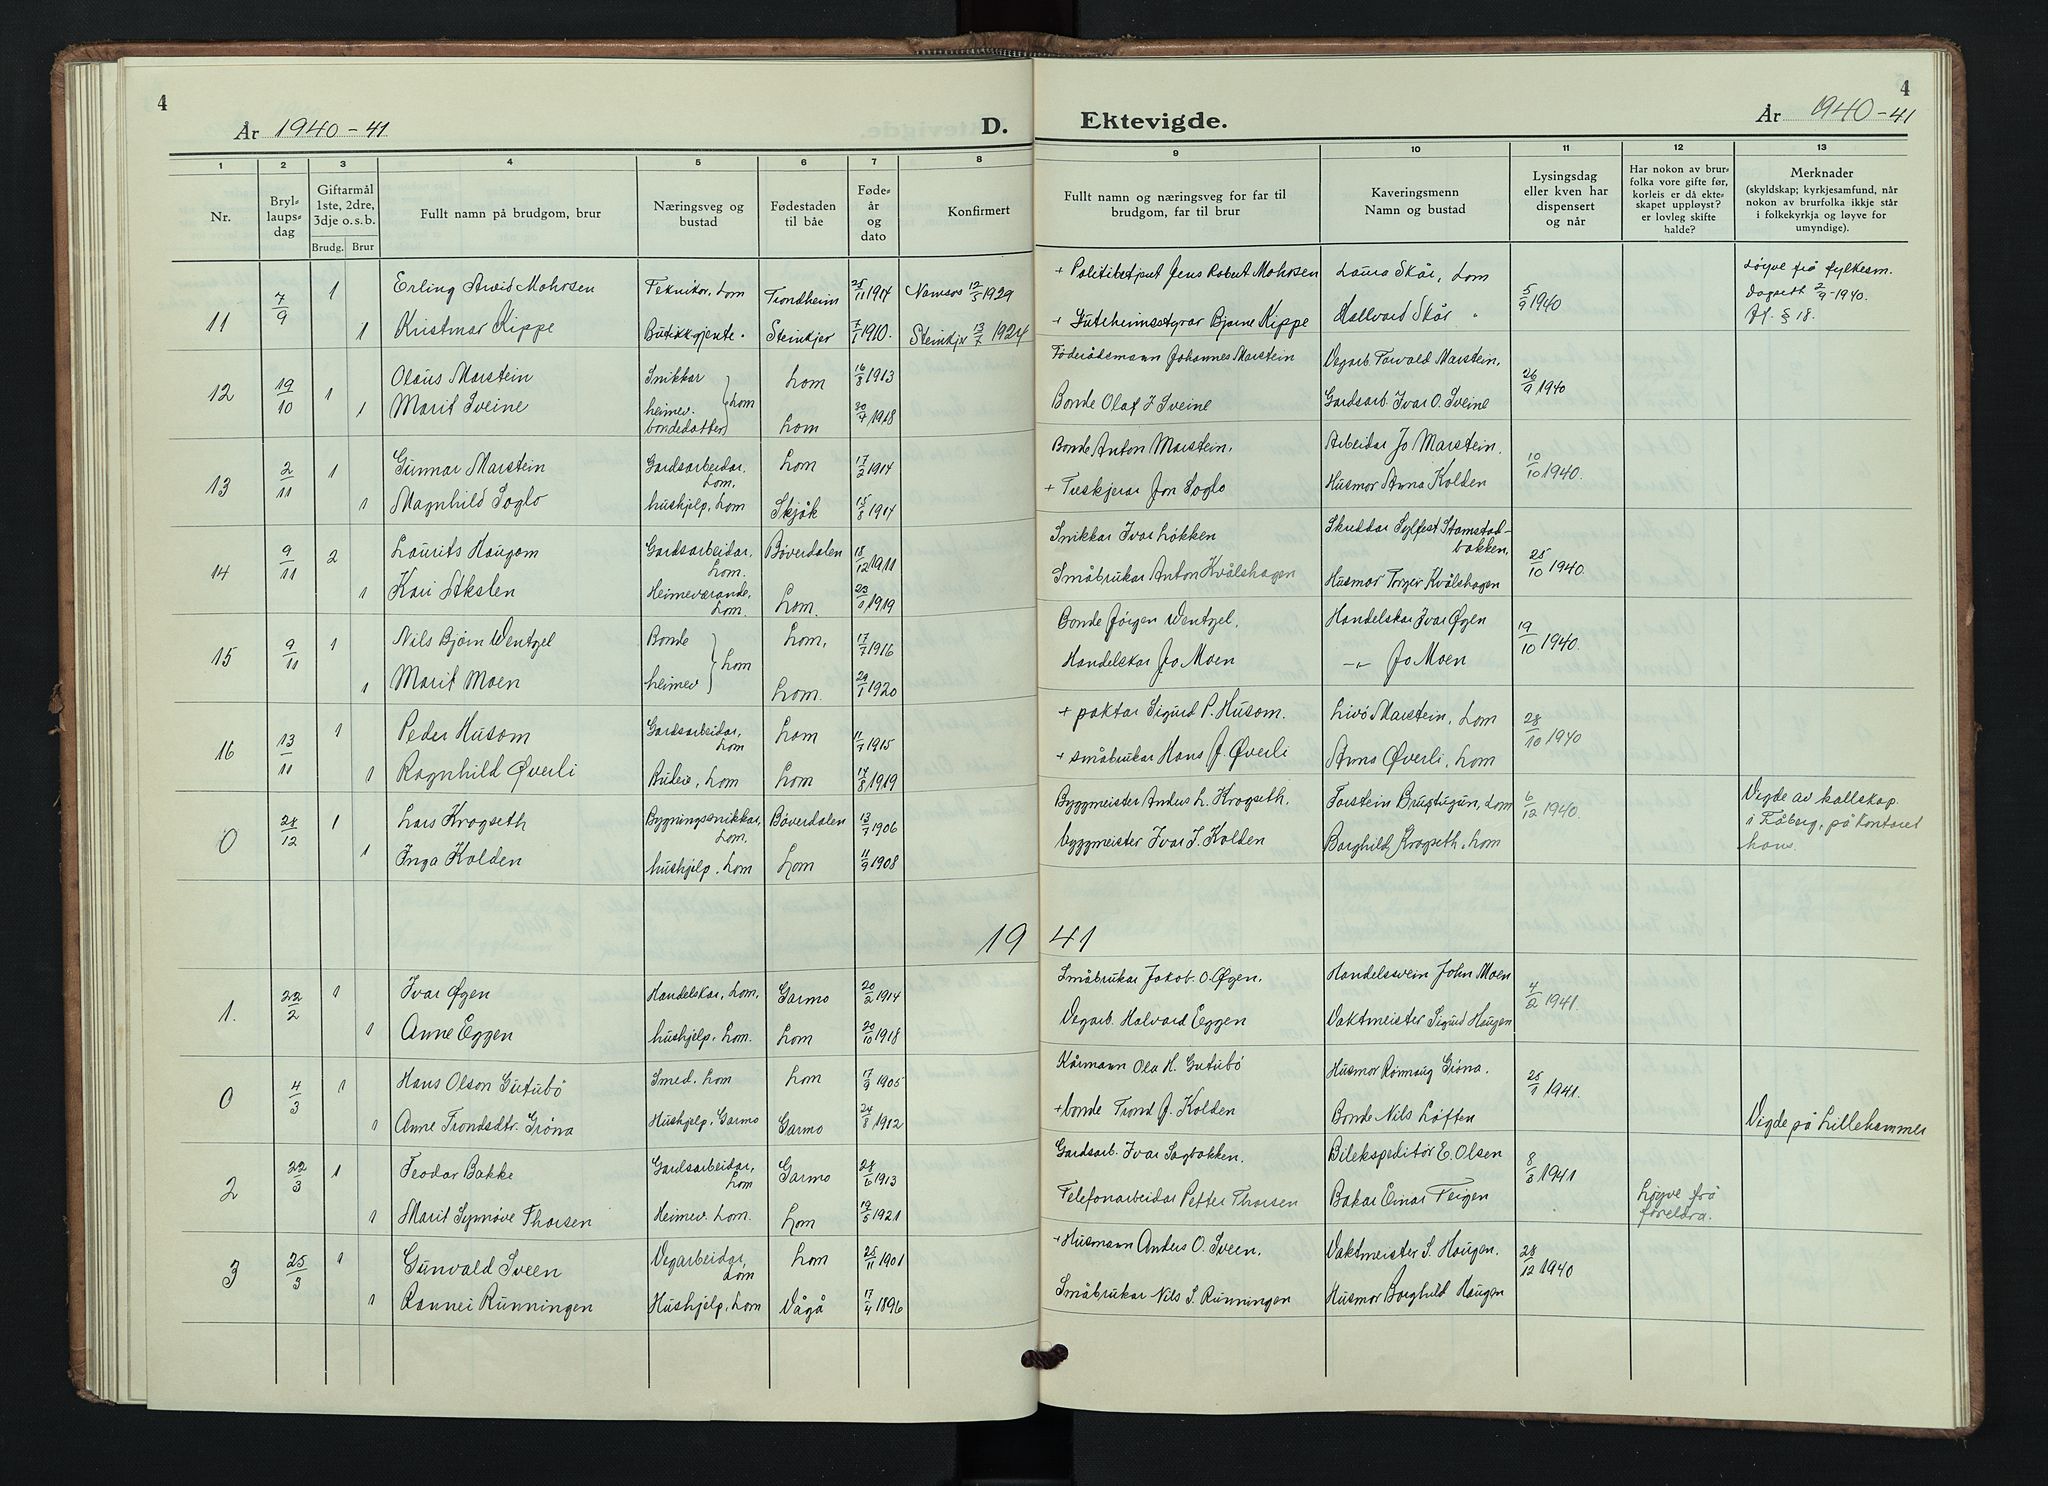 4
År 1940-41
D. Ektevigde.
År 1940-41
4
1 2 3 4 5 6 7 8 9 10 11 12 13
Nr.
Bryl-
laups-
dag
Giftarmål
1ste, 2dre,
3dje o.s.b.
Brudg. Brur
Fullt namn på brudgom, brur
Næringsveg og
bustad
Fødestaden
til båe
Føde-
år
og
dato
Konfirmert
Fullt namn og næringsveg for far til
brudgom, far til brur
Kaveringsmenn
Namn og bustad
Lysingsdag
eller kven har
dispensert
og når
Har nokon av brur-
folka vore gifte før,
korleis er då ekte-
skapet uppløyst?
er lovleg skifte
halde?
Merknader
(skyldskap; kyrkjesamfund, når
nokon av brurfolka ikkje står
i folkekyrkja og løyve for
umyndige).
11 7/9 1 Erling Arvid Mohrsen Teknikar, Lom Trondheim 25/11 1904 Namsos 12/5 1929 + Politibetjent Jens Robert Mohrsen Laura Skår, Lom 5/9 1940 Løyve frå fylkesm.
dagsett 2/9-1940.
Jf. § 18.
1 Kristmar Kippe Butikkgjente " Steinkjer 7/1 1910. Steinkjer 13/7 1924 + Bjarne Kippe Hallvard Skår "
12 19/10 1 Olaus Marstein Snikkar Lom 16/8 1913 Føderådsmann Johannes Marstein Vegarb. Torvald Marstein. 26/9 1940
1 Marit Sveine heimev.
bondedatter Lom Lom 30/7 1918 Bonde Olaf J Sveine Gardsarb. Ivar O. Sveine
13 2/11 1 Gunnar Marstein Gardsarbeidar,
Lom. Lom 17/2 1914 Bonde Anton Marstein. Arbeidar Jo Marstein. 10/10 1940.
1 Magnhild Soglo hushjelp, Lom Skjåk 15/8 1914 + Treskjerar Jon Soglo Husmor Anna Kolden
14 9/11 2 Laurits Haugom Gardsarbeidar,
Lom. Bøverdalen 18/12 1911 Snikkar Ivar Løkken Skreddar Sylfest Stamstad-
bakken. 25/10 1940.
1 Kari Akslen Heimeværande,
Lom. Lom. 23/1 1919 Småbrukar Anton Kvålshagen Husmor Torger Kvålshagen
15 9/11 1 Nils Bjørn Wentzel Bonde Lom. 17/7 1916 Bonde Jørgen Wentzel. Handelskar Ivar Øgen 19/10 1940.
1 Marit Moen heimev Lom Lom. 29/1 1920 Handelskar Jo Moen -"- Jo Moen
16 13/11 1 Peder Husom Gardsarbeidar,
Lom Lom 11/7 1915 + paktar Sigurd P. Husom. Livø Marstein, Lom 28/10 1940
1 Ragnhild Øverli Budeie, Lom Lom 14/8 1919 + småbrukar Hans J. Øverli Anna Øverli, Lom
0 28/12 1 Lars Krogseth Bygningssnikkar,
Lom. Bøverdalen 13/7 1906 Byggmeister Anders L. Krogseth. Torstein Brugtugun, Lom 6/12 1940. Vigde av kallskap.
i Fåberg, på kontoret
hans.
1 Inga Kolden hushjelp. Lom Lom 11/9 1908 byggmeister Ivar J. Kolden Borghild Krogseth. Lom
1941
1. 22/2 1 Ivar Øgen Handelskar, Lom. Garmo 20/2 1914 Småbrukar Jakob O. Øgen. Handelssvein John Moen 4/2 1941.
1 Anne Eggen hushjelp. Lom. Lom 20/10 1918 Vegarb. Halvard Eggen Vaktmeister Sigurd Haugen
0 4/3 1 Hans Olson Gutubø Smed. Lom Lom 17/9 1905 Kårmann Ola H. Gutubø Husmor Rønnaug Grøna. 25/1 1941.
1 Anne Trondsdtr. Grøna Hushjelp, Garmo Garmo 24/8 1912 + bonde Trond J. Kolden Bonde Nils Løften Vigde på Lillehammer
2 22/3 1 Teodor Bakke Gardsarbeidar,
Lom Garmo 28/6 1913 Gardsarb. Ivar Sagbakken. Bilekspeditør E. Olsen 8/3 1941
1 Marit Synnøve Thorsen Heimev. Lom. Lom 19/5 1921 Telefonarbeidar Petter Thorsen Bakar Einar Teigen Løyve frå
foreldra.
3 25/3 1 Gunvald Sveen Vegarbeidar,
Lom Lom 25/11 1901 + Husmann Anders O. Sveen. Vaktmeister S. Haugen. 28/12 1940
1 Rannei Runningen Hushjelp, Lom Vågå 17/4 1896 Småbrukar Nils S. Runningen Husmor Borghild Haugen